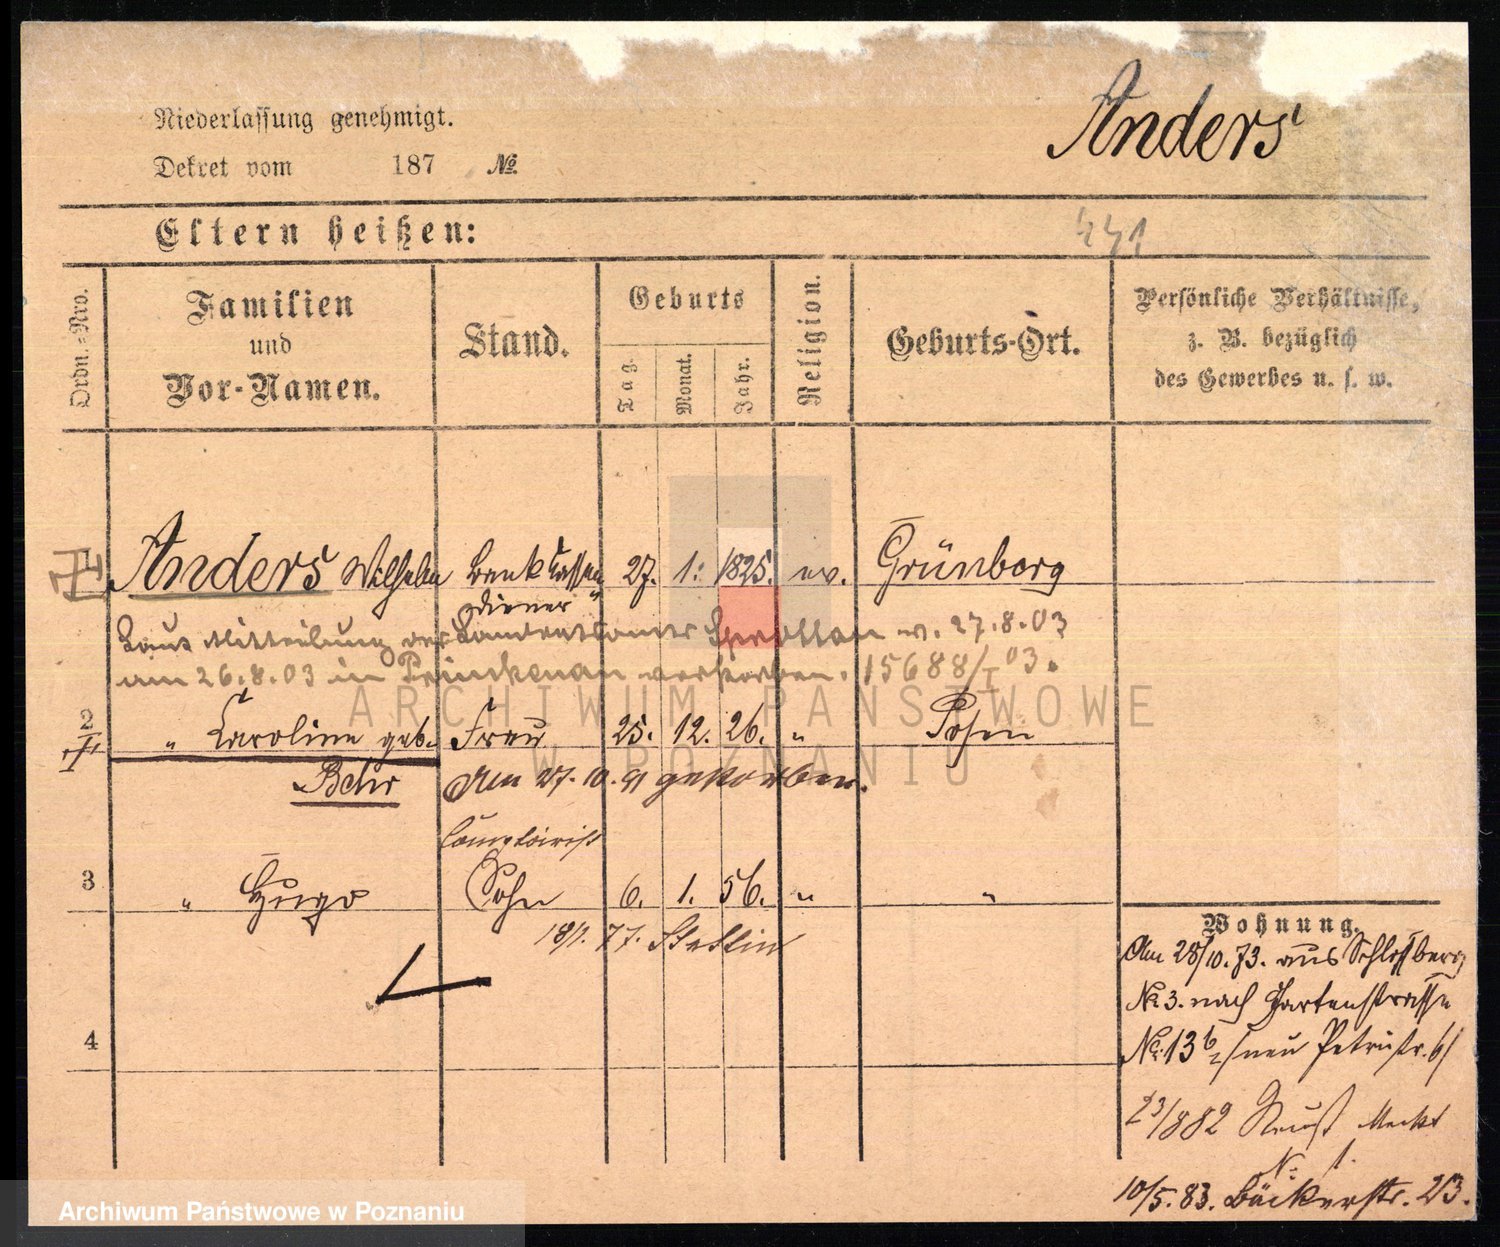 Niederlassung genehmigt.
Anders
Dekret vom 187 №
Eltern heißen:
441
Ordn.-Nro.
Familien und Vor-Namen.
Stand.
Geburts
Tag.
Monat.
Jahr.
Religion.
Geburts-Ort.
Persönliche Verhältnisse, z. B. bezüglich des Gewerbes u. s. w.
Anders Wilhelm Bank Cassen 27. 1. 1825. ev. Grünberg
diener
Laut Mitteilung des Landratsamts Sprottau v. 27.8.03
am 26.8.03 in Primkenau verstorben. 15688/I 03.
2 " Caroline geb. Frau 25. 12. 26. " Posen
Behr Am 27.10.91 gestorben.
Comptoirist
3 " Hugo Sohn 6. 1. 56. " "
18/1. 77. Stettin
4
Wohnung.
Am 28/10.73. aus Schloßberg
No 3. nach Gartenstrasse
No. 13b / neu Petristr. 6/
23/8 82 Neust Markt
N. 1.
10/5. 83. Bäckerstr. 23.
ARCHIWUM PAŃSTWOWE
W POZNANIU
Archiwum Państwowe w Poznaniu